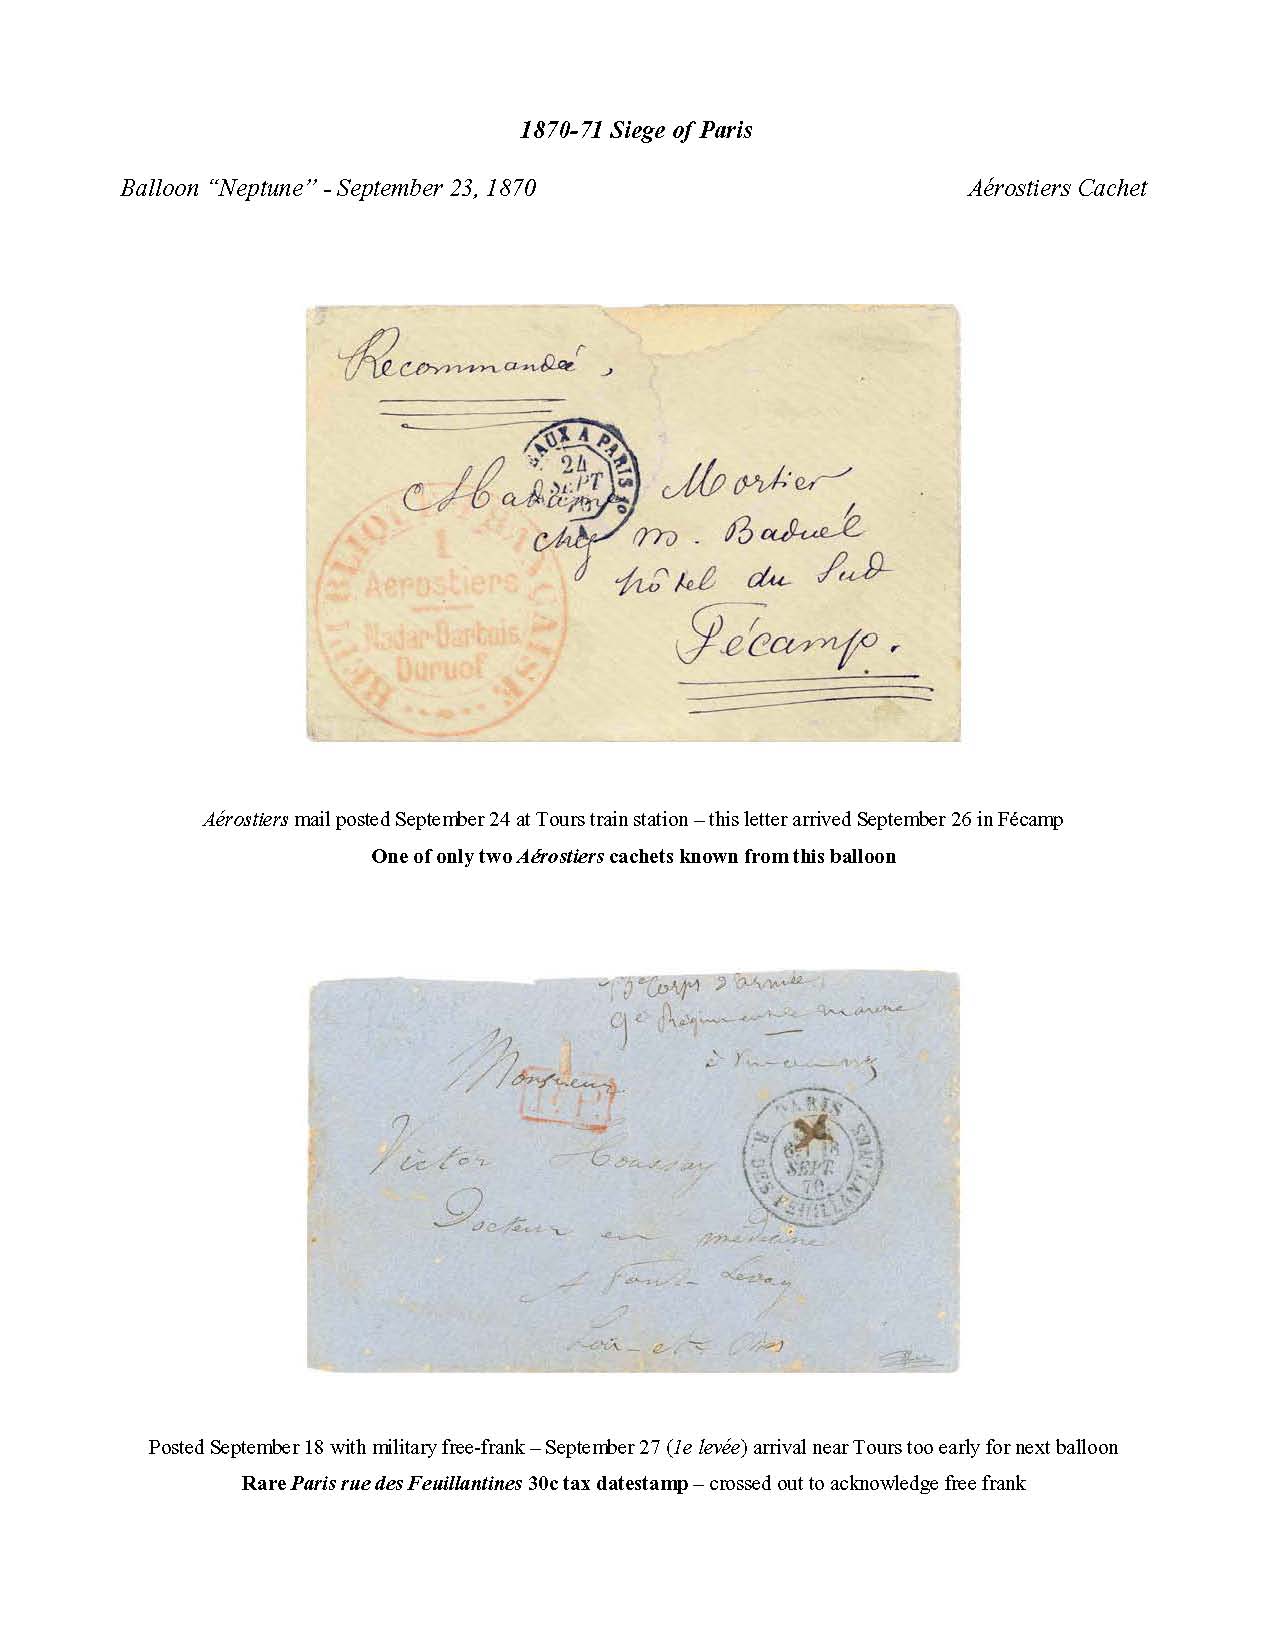 1870-71 Siege of Paris
Balloon “Neptune” - September 23, 1870
Aérostiers Cachet
Recommandée,
EAUX A PARIS 1o
24
SEPT
70
Madame Mortier
chez m. Baduel
hôtel du Sud
Fécamp.
REPUBLIQUE FRANÇAISE
1
Aerostiers
Nadar-Dartois
Duruof
Aérostiers mail posted September 24 at Tours train station – this letter arrived September 26 in Fécamp
One of only two Aérostiers cachets known from this balloon
13e Corps d'armée
9e Régiment de marche
à
Monsieur
P.P.
PARIS
SEPT.
70
R. DES FEUILLANTINES
Victor Houssay
Docteur en médecine
A Pont-Levoy
Loir-et-Cher
Posted September 18 with military free-frank – September 27 (1e levée) arrival near Tours too early for next balloon
Rare Paris rue des Feuillantines 30c tax datestamp – crossed out to acknowledge free frank